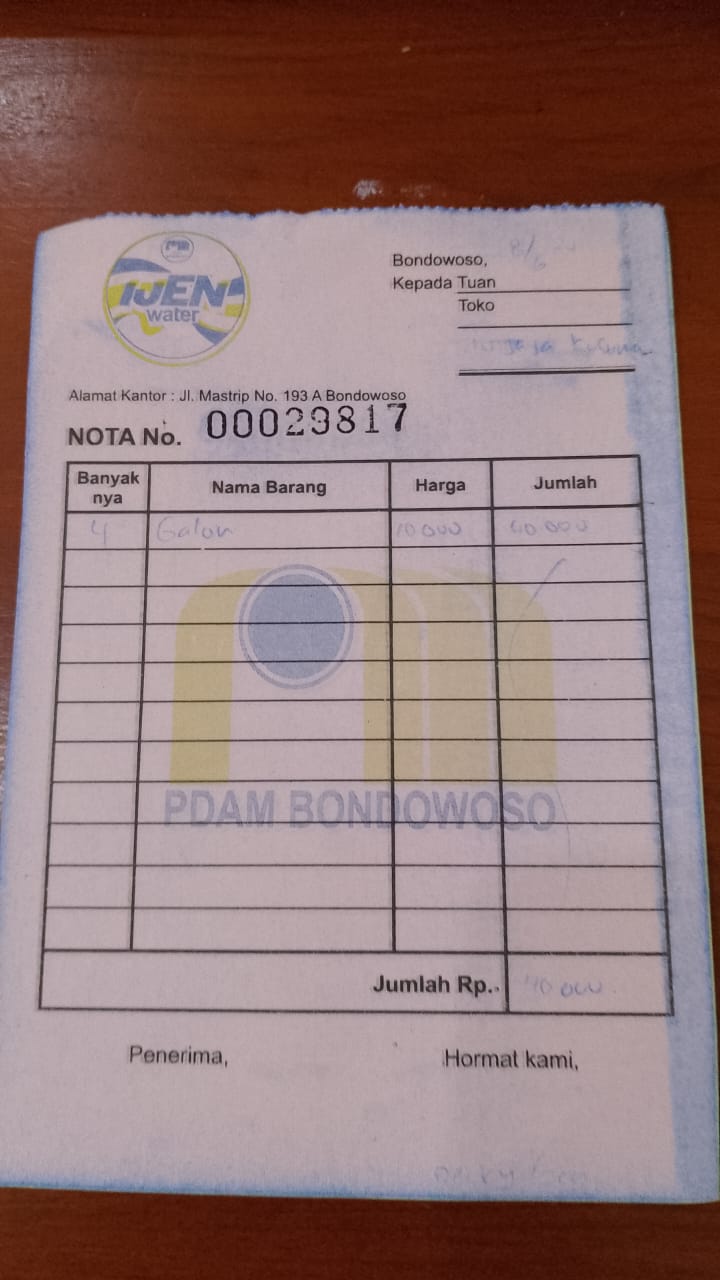 IJEN
water
Bondowoso, 8/6
Kepada Tuan
Toko
Alamat Kantor : Jl. Mastrip No. 193 A Bondowoso
NOTA No. 00029817
Banyak nya Nama Barang Harga Jumlah
4 Galon 10 000 40 000
PDAM BONDOWOSO
Jumlah Rp. 40 000
Penerima, Hormat kami,